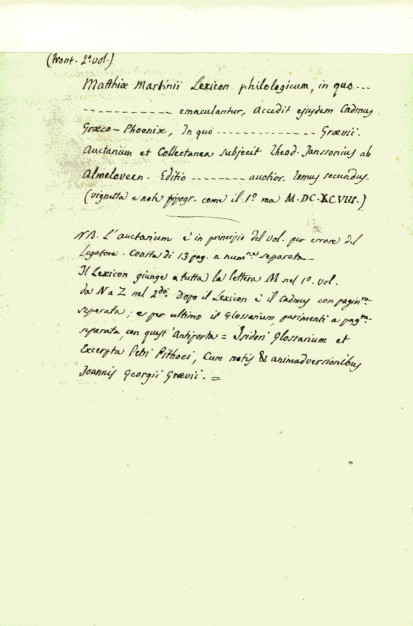 (Front. 2º vol.)
Matthiæ Martinii Lexicon philologicum, in quo ---
------------- emaculantur. Accedit ejusdem Cadmus
Græco-Phoenix, In quo -------------- Grævii.
Auctarium et Collectanea subjecit Theod. Janssonius ab
Almeloveen. Editio -------- auctior. Tomus secundus.
(vignetta e note come il 1º ma M.DC.XCVIII.)
NB. L'auctarium è in principio del vol. per errore del
Legatore. Consta di 13 pag. a num.ne separata —
Il Lexicon giunge a tutta la lettera M nel 1º. vol.
da N a Z nel 2do. dopo il Lexicon è il Cadmus con pagin.ne
separata; e per ultimo il Glossarium, parimenti a pag.ne
separata, con quest'Antiporta = Isidori Glossarium et
Excerpta Petri Pithoei, Cum notis & animadversionibus
Joannis Georgii Grævii. =